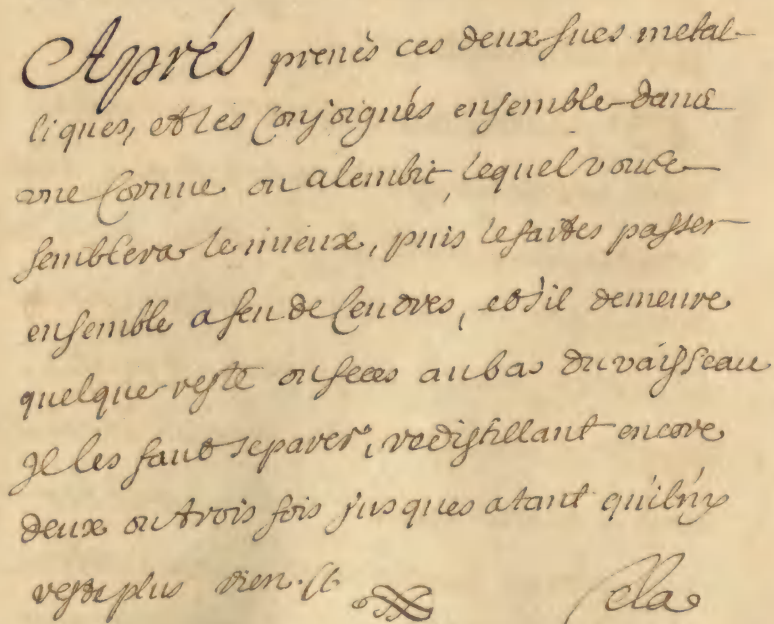 Aprés prenès ces deux sucs metal-
liques, et les conjoignés ensemble dans
vne Cornue ou alembic, lequel vous
semblera le mieux, puis le faites passer
ensemble a feu de Cendres, et s'il demeure
quelque reste ou feces au bas du vaisseau
Il les faut separer, redistillant encore
deux ou trois fois jusques a tant qu'il n'y
reste plus rien.
Cela